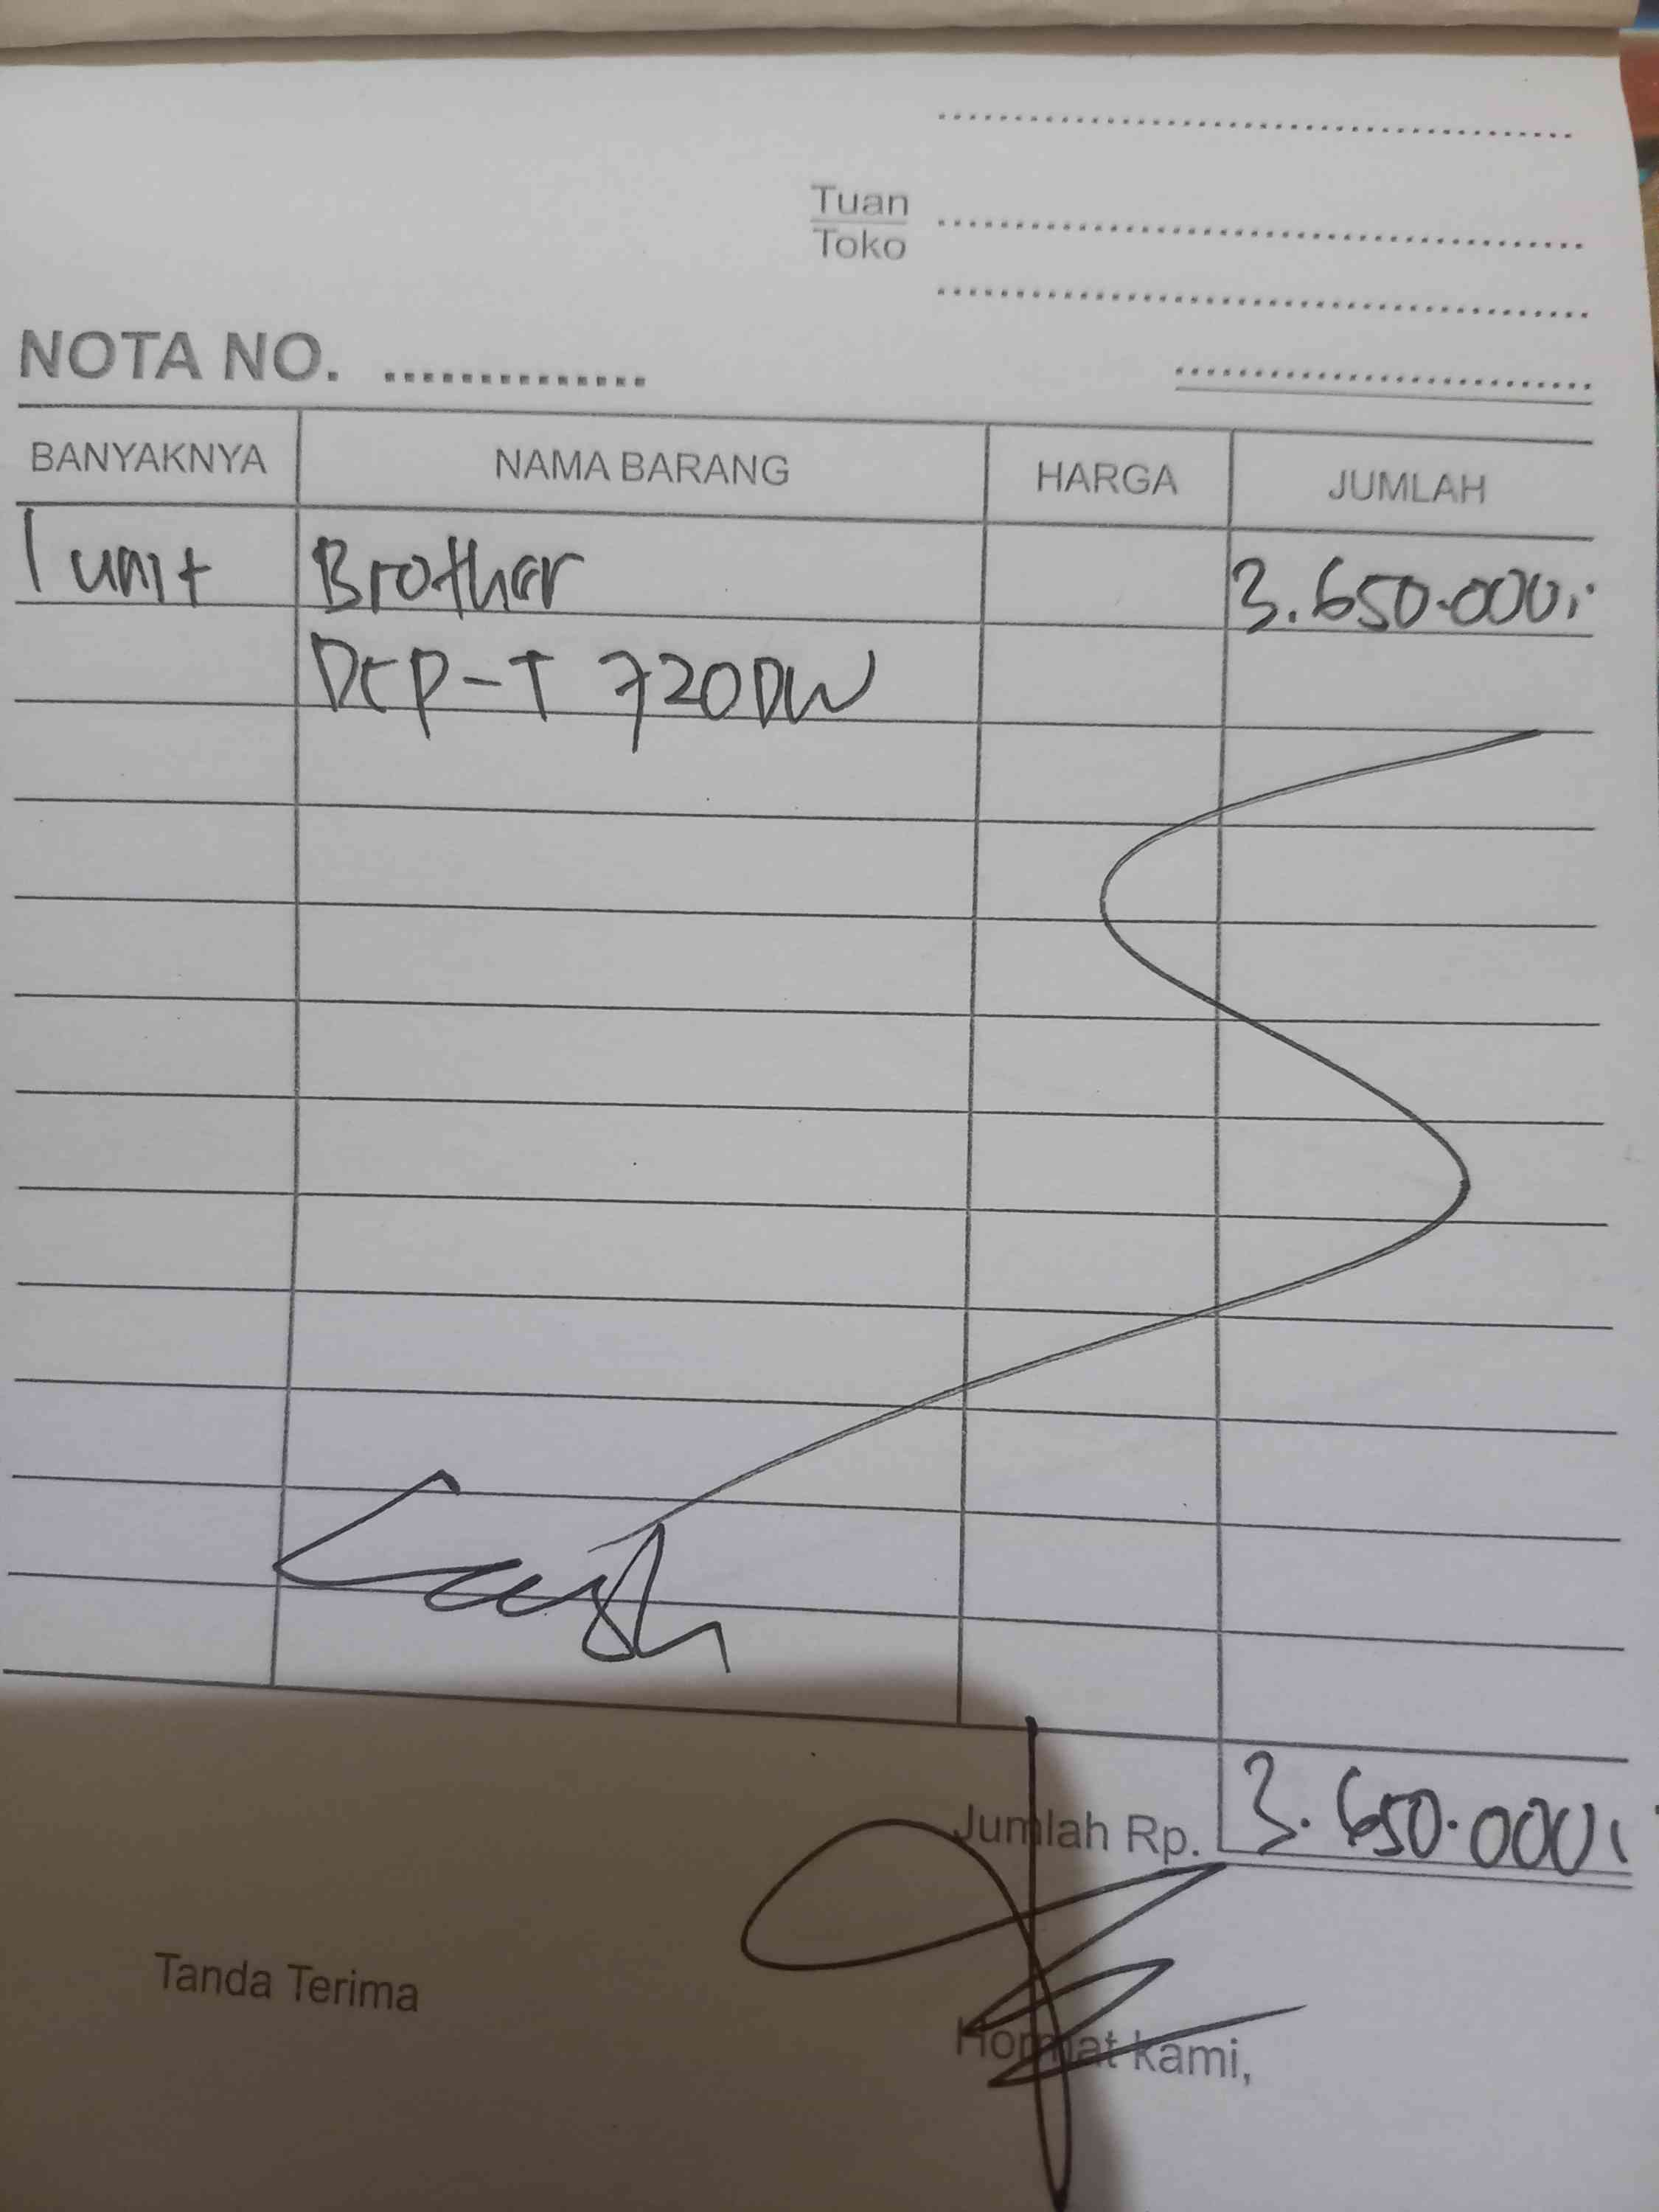 Tuan
Toko
NOTA NO. ..............
BANYAKNYA NAMA BARANG HARGA JUMLAH
1 unit Brother 3.650.000,-
DCP-T 720DW
Cash
Jumlah Rp. 3.650.000,
Tanda Terima
Hormat kami,